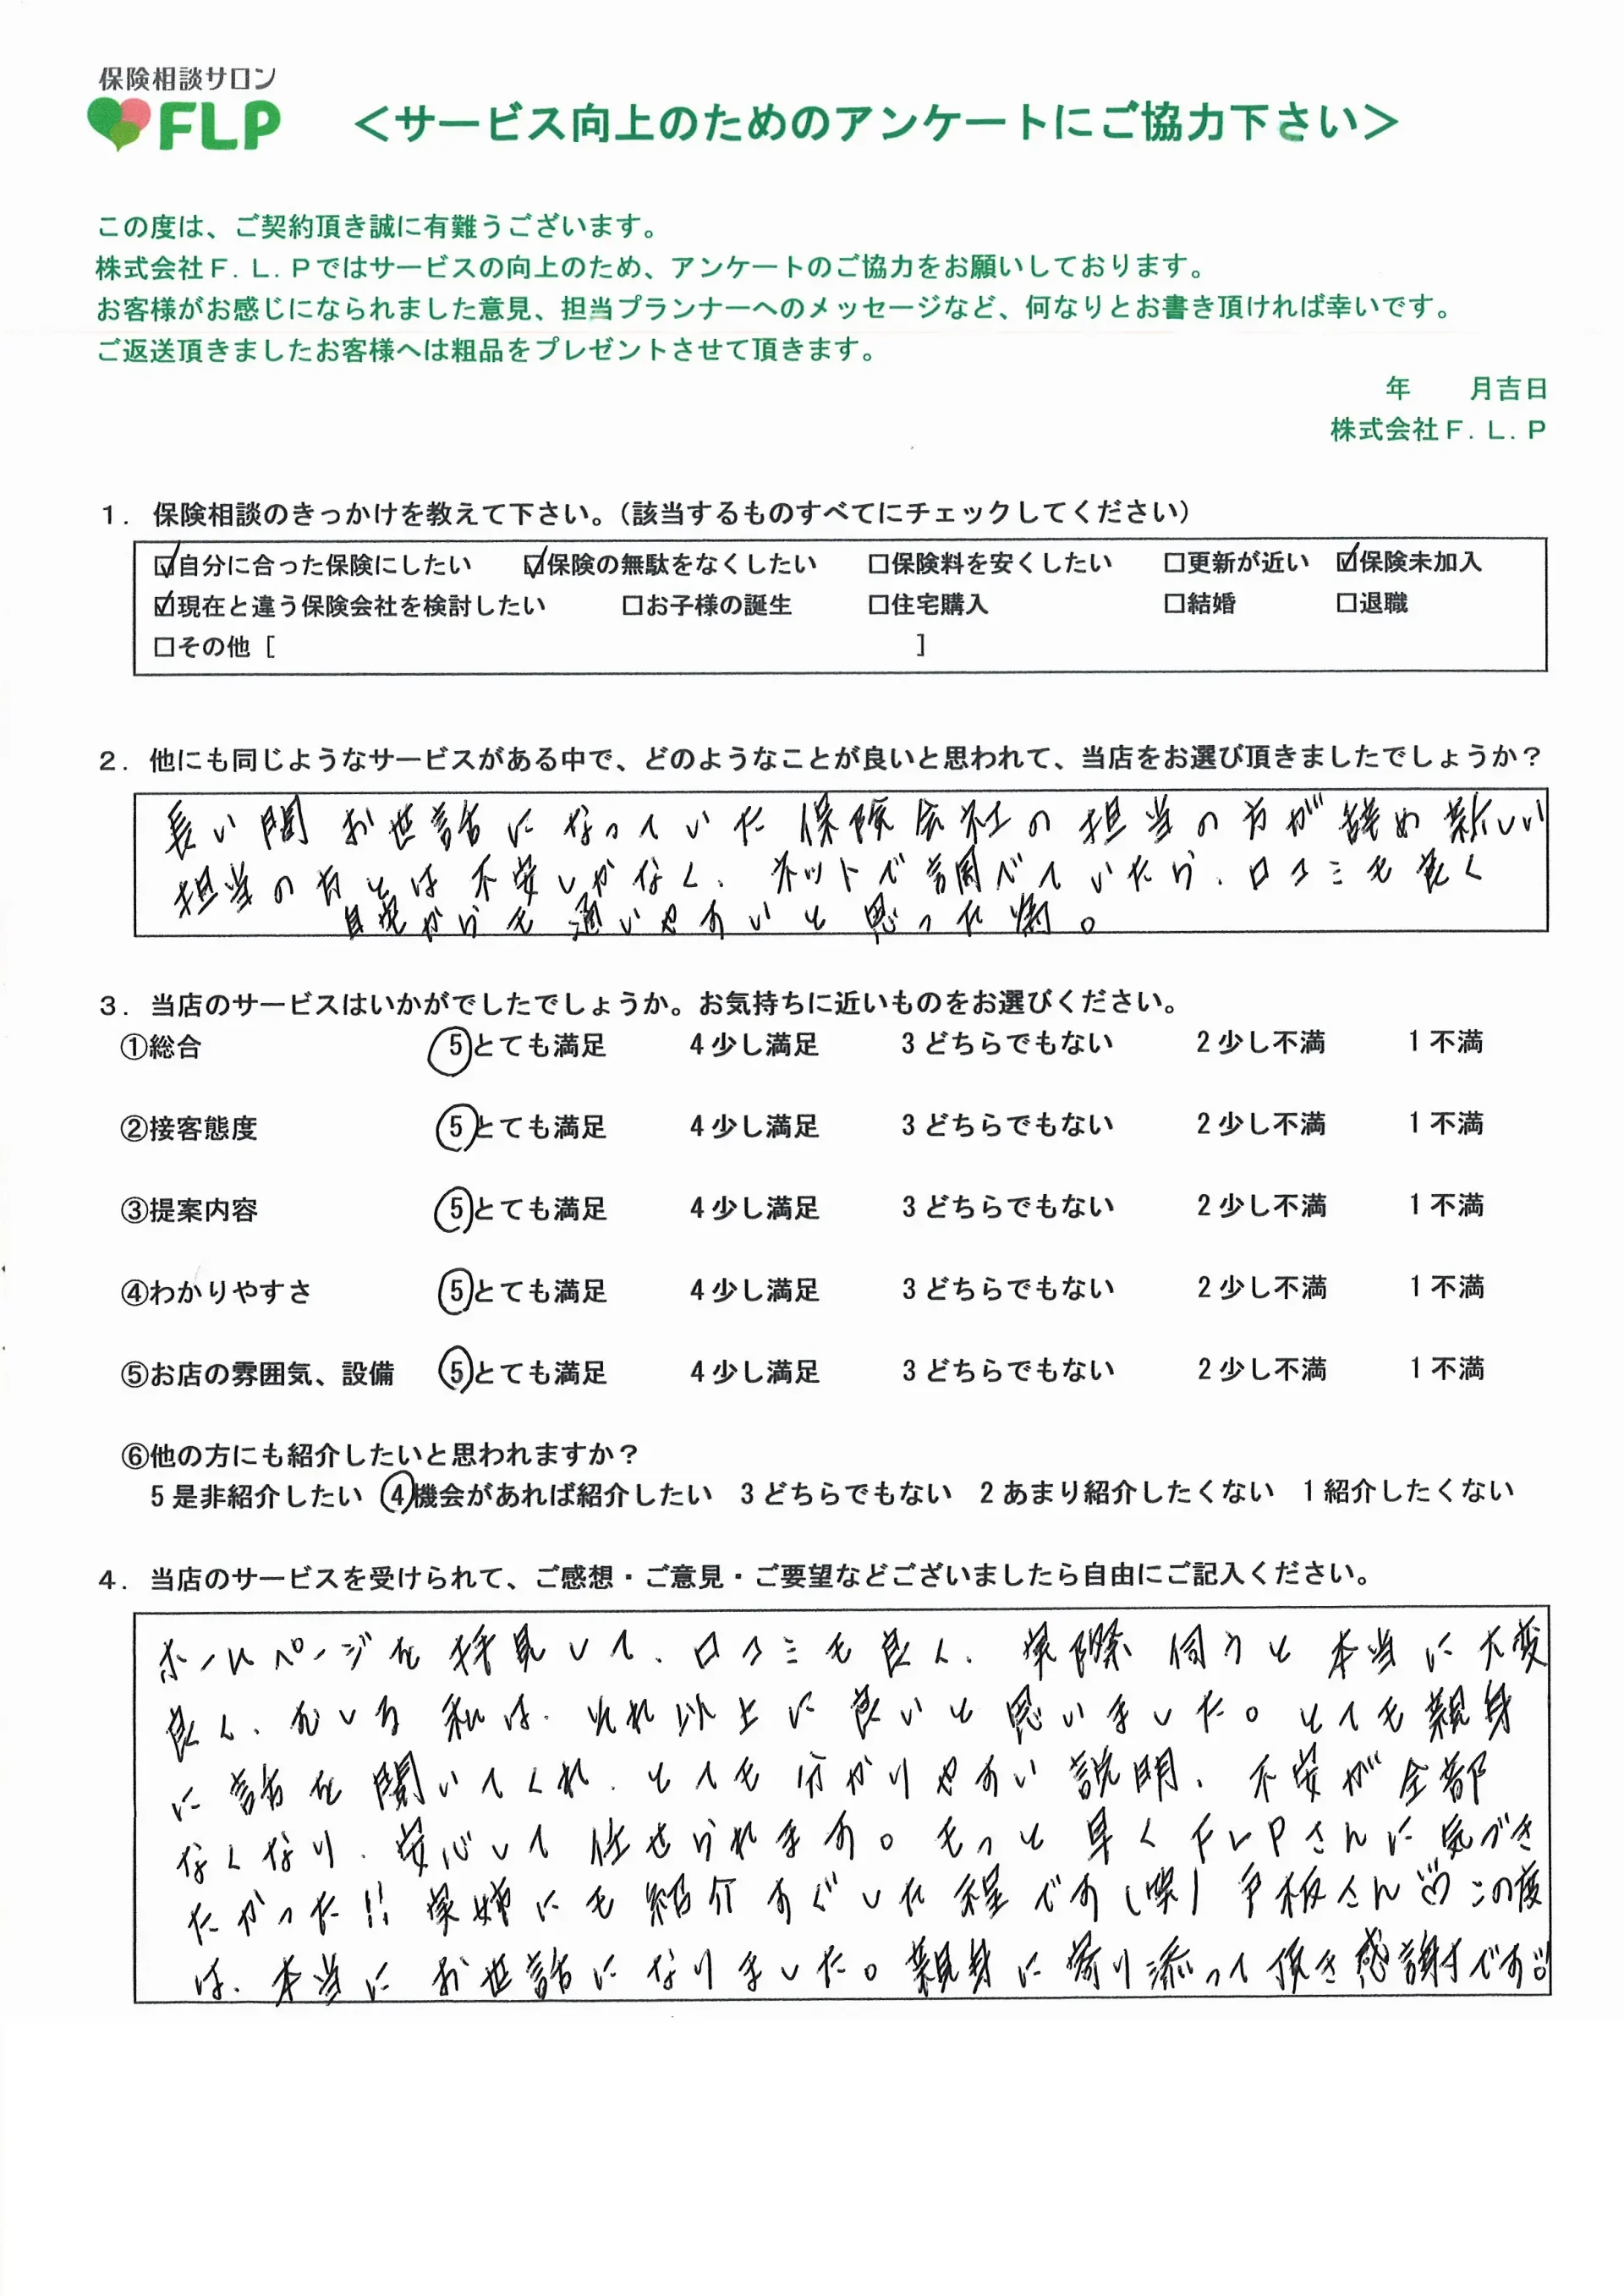 保険相談サロン
FLP
＜サービス向上のためのアンケートにご協力下さい＞
この度は、ご契約頂き誠に有難うございます。
株式会社Ｆ．Ｌ．Ｐではサービスの向上のため、アンケートのご協力をお願いしております。
お客様がお感じになられました意見、担当プランナーへのメッセージなど、何なりとお書き頂ければ幸いです。
ご返送頂きましたお客様へは粗品をプレゼントさせて頂きます。
年　　月吉日
株式会社Ｆ．Ｌ．Ｐ
１．保険相談のきっかけを教えて下さい。（該当するものすべてにチェックしてください）
☑自分に合った保険にしたい　☑保険の無駄をなくしたい　□保険料を安くしたい　□更新が近い　☑保険未加入
☑現在と違う保険会社を検討したい　□お子様の誕生　□住宅購入　□結婚　□退職
□その他［　　　］
２．他にも同じようなサービスがある中で、どのようなことが良いと思われて、当店をお選び頂きましたでしょうか？
長い間お世話になっていた保険会社の担当の方が辞め新しい
担当の方とは不安しかなく、ネットで調べていたら、口コミも良く
自宅からも通いやすいと思った為。
３．当店のサービスはいかがでしたでしょうか。お気持ちに近いものをお選びください。
①総合　５とても満足　４少し満足　３どちらでもない　２少し不満　１不満
②接客態度　５とても満足　４少し満足　３どちらでもない　２少し不満　１不満
③提案内容　５とても満足　４少し満足　３どちらでもない　２少し不満　１不満
④わかりやすさ　５とても満足　４少し満足　３どちらでもない　２少し不満　１不満
⑤お店の雰囲気、設備　５とても満足　４少し満足　３どちらでもない　２少し不満　１不満
⑥他の方にも紹介したいと思われますか？
５是非紹介したい　４機会があれば紹介したい　３どちらでもない　２あまり紹介したくない　１紹介したくない
４．当店のサービスを受けられて、ご感想・ご意見・ご要望などございましたら自由にご記入ください。
ホームページを拝見して、口コミも良く、実際伺うと本当に大変
良く、むしろ私は、それ以上に良いと思いました。とても親身
に話を聞いてくれ、とても分かりやすい説明、不安が全部
なくなり、安心して任せられます。もっと早くFLPさんに気づき
たかった!! 実姉にも紹介すぐした程です（笑）戸板さん♡この度
は、本当にお世話になりました。親身に寄り添って頂き感謝です